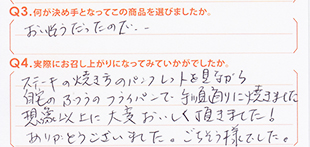 Q3.何が決め手となってこの商品を選びましたか。
おいしそうだったので…
Q4.実際にお召し上がりになってみていかがでしたか。
ステーキの焼き方のパンフレットを見ながら
自宅のふつうのフライパンで手順通りに焼きました
想像以上に大変おいしく頂きました!
ありがとうございました。ごちそう様でした。